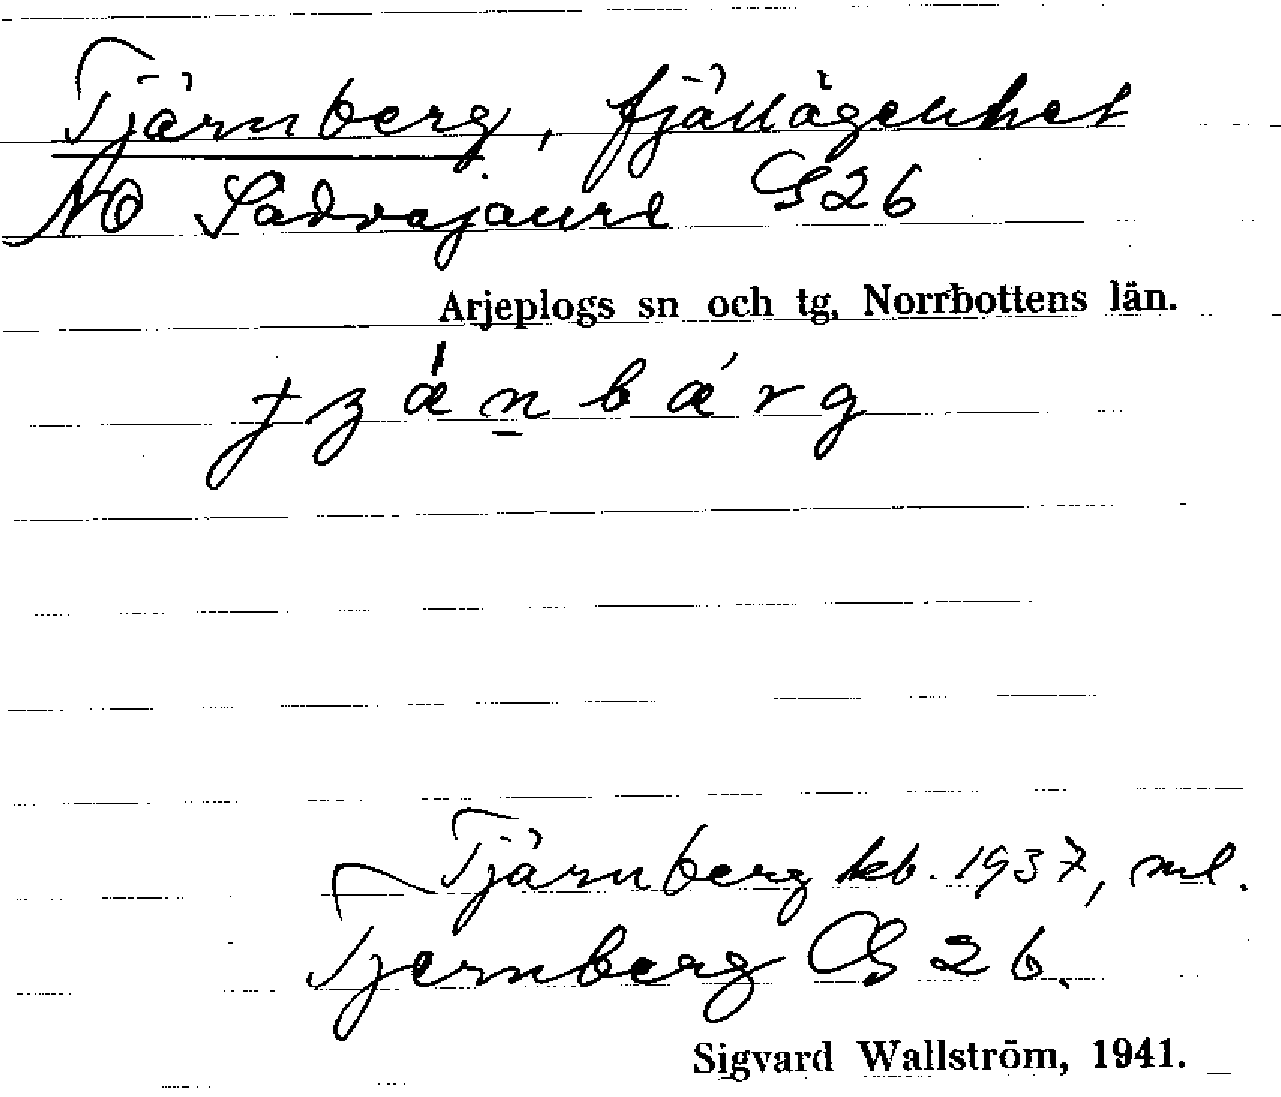 Tjärnberg, fjällägenhet
NO Sadvajaure GS 26
Arjeplogs sn och tg, Norrbottens län.
Tjärnberg kb. 1937, ml.
Tjernberg GS 26.
Sigvard Wallström, 1941.